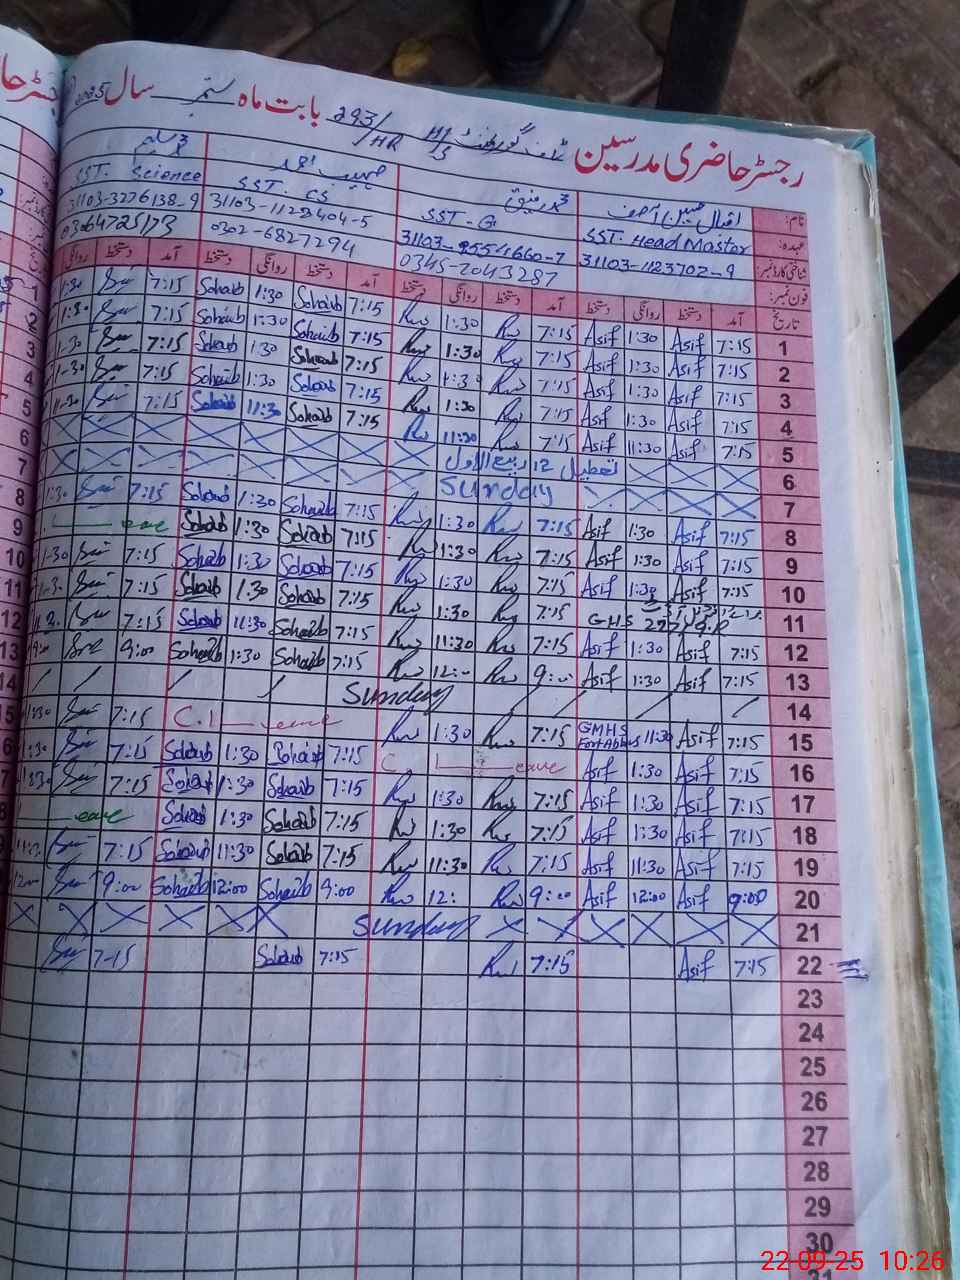 رجسٹر حاضری مدرسین گورنمنٹ 293/HR بابت ماہ ستمبر سال 2025
نام: اقبال حسین آصف محمد رفیق صہیب احمد محمد سلیم
عہدہ: SST. Head Master SST - G SST. CS SST. Science
شناختی کارڈ نمبر: 31103-1123702-9 31103-9554660-7 31103-1128404-5 31103-3276138-9
فون نمبر: 0345-7043287 0302-6827294 03064725173
تاریخ آمد دستخط روانگی دستخط آمد دستخط روانگی دستخط آمد دستخط روانگی دستخط آمد دستخط روانگی
1 7:15 Asif 1:30 Asif 7:15 Rw 1:30 Rw 7:15 Sohaib 1:30 Sohaib 7:15 1:30
2 7:15 Asif 1:30 Asif 7:15 Rw 1:30 Rw 7:15 Sohaib 1:30 Sohaib 7:15 1:30
3 7:15 Asif 1:30 Asif 7:15 Rw 1:30 Rw 7:15 Sohaib 1:30 Sohaib 7:15 1-30
4 7:15 Asif 1:30 Asif 7:15 Rw 1:30 Rw 7:15 Sohaib 1:30 Sohaib 7:15 1-30
5 7:15 Asif 11:30 Asif 7:15 Rw 11:30 Rw 7:15 Sohaib 11:30 Sohaib 7:15 11-30
6 تعطیل 12 ربیع الاول
7 Sunday
8 7:15 Asif 1:30 Asif 7:15 Rw 1:30 Rw 7:15 Sohaib 1:30 Sohaib 7:15 1:30
9 7:15 Asif 1:30 Asif 7:15 Rw 1:30 Rw 7:15 Sohaib 1:30 Sohaib eave
10 7:15 Asif 1:30 Asif 7:15 Rw 1:30 Rw 7:15 Sohaib 1:30 Sohaib 7:15 1-30
11 GHS 277/9.R 7:15 Rw 1:30 Rw 7:15 Sohaib 1:30 Sohaib 7:15 1-30
12 7:15 Asif 1:30 Asif 7:15 Rw 11:30 Rw 7:15 Sohaib 11:30 Sohaib 7:15
13 7:15 Asif 1:30 Asif 9:00 Rw 12:00 Rw 7:15 Sohaib 1:30 Sohaib 9:00
14 Sunday
15 7:15 Asif 11:30 GMHS Fort Abbas 7:15 Rw 1:30 Rw C.L eave 7:15 1:30
16 7:15 Asif 1:30 Asif C. L eave 7:15 Sohaib 1:30 Sohaib 7:15 1:30
17 7:15 Asif 1:30 Asif 7:15 Rw 1:30 Rw 7:15 Sohaib 1:30 Sohaib 7:15 1:30
18 7:15 Asif 1:30 Asif 7:15 Rw 1:30 Rw 7:15 Sohaib 1:30 Sohaib eave
19 7:15 Asif 11:30 Asif 7:15 Rw 11:30 Rw 7:15 Sohaib 11:30 Sohaib 7:15
20 9:00 Asif 12:00 Asif 9:00 Rw 12: Rw 9:00 Sohaib 12:00 Sohaib 9:00 12:00
21 Sunday
22 7:15 Asif 7:15 Rw 7:15 Sohaib 7-15
23
24
25
26
27
28
29
30
31
22-09-25 10:26